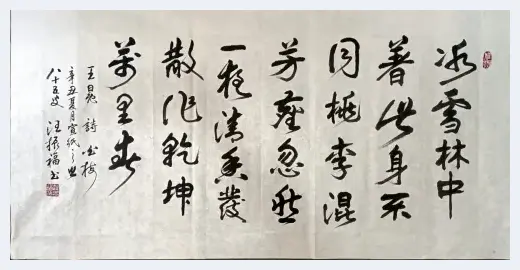 冰雪林中
著此身不
同桃李混
芳塵忽然
一夜清香發
散作乾坤
萬里春
王冕 詩 梅
辛丑夏月宣紙之
八十五叟 汪振福书